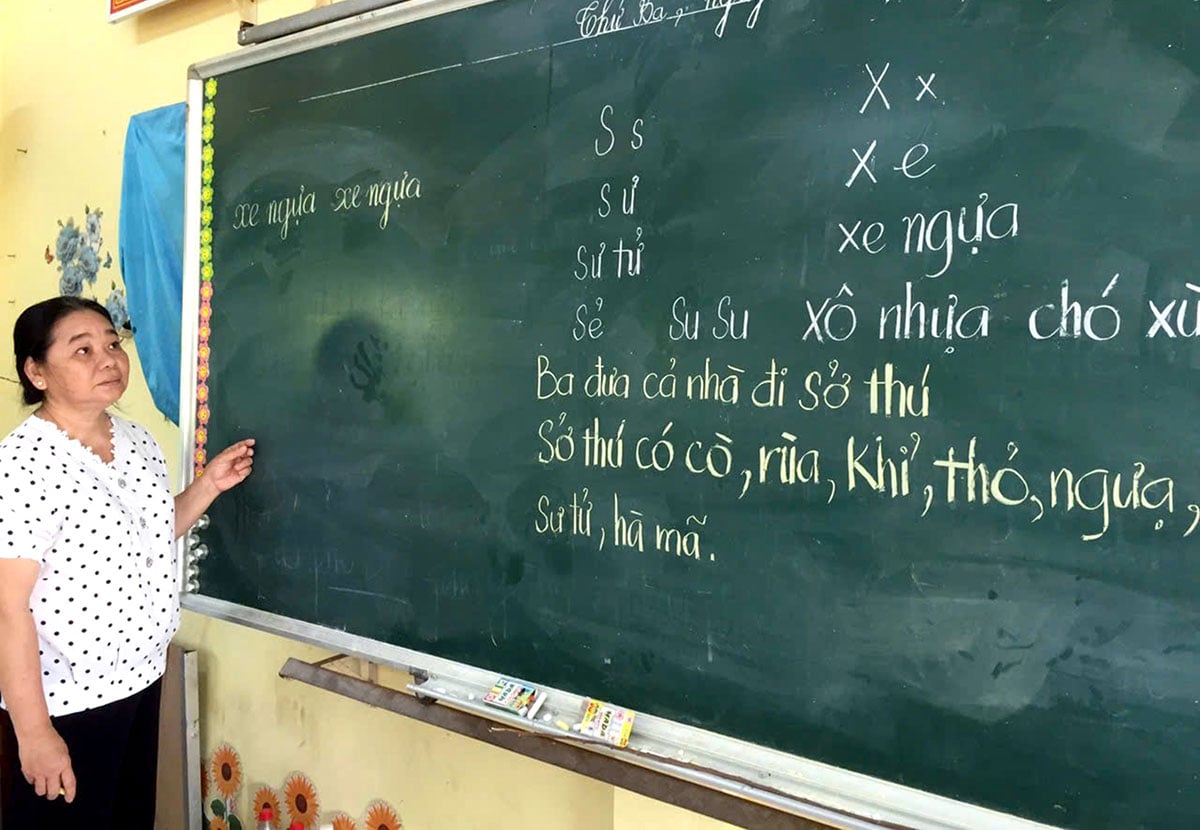 Thứ Ba, ngày
xe ngựa xe ngựa
S s
sư
Sư tử
Sẻ Su Su
X x
x e
xe ngựa
xô nhựa chó xù
Ba đưa cả nhà đi sở thú
Sở thú có cò, rùa, khỉ, thỏ, ngưạ,
Sư tử, hà mã.